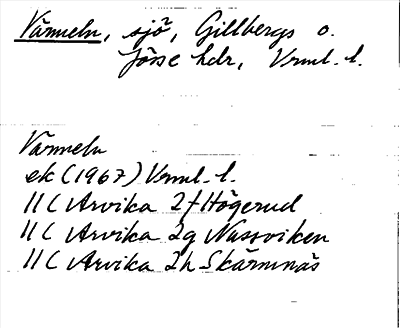 Värmeln, sjö, Gillbergs o.
Jösse hdr, Vrml. l.
Värmeln
ek (1967) Vrml. l.
11 C Arvika 2f Högerud
11 C Arvika 2g Nussviken
11 C Arvika 2h Skärmnäs